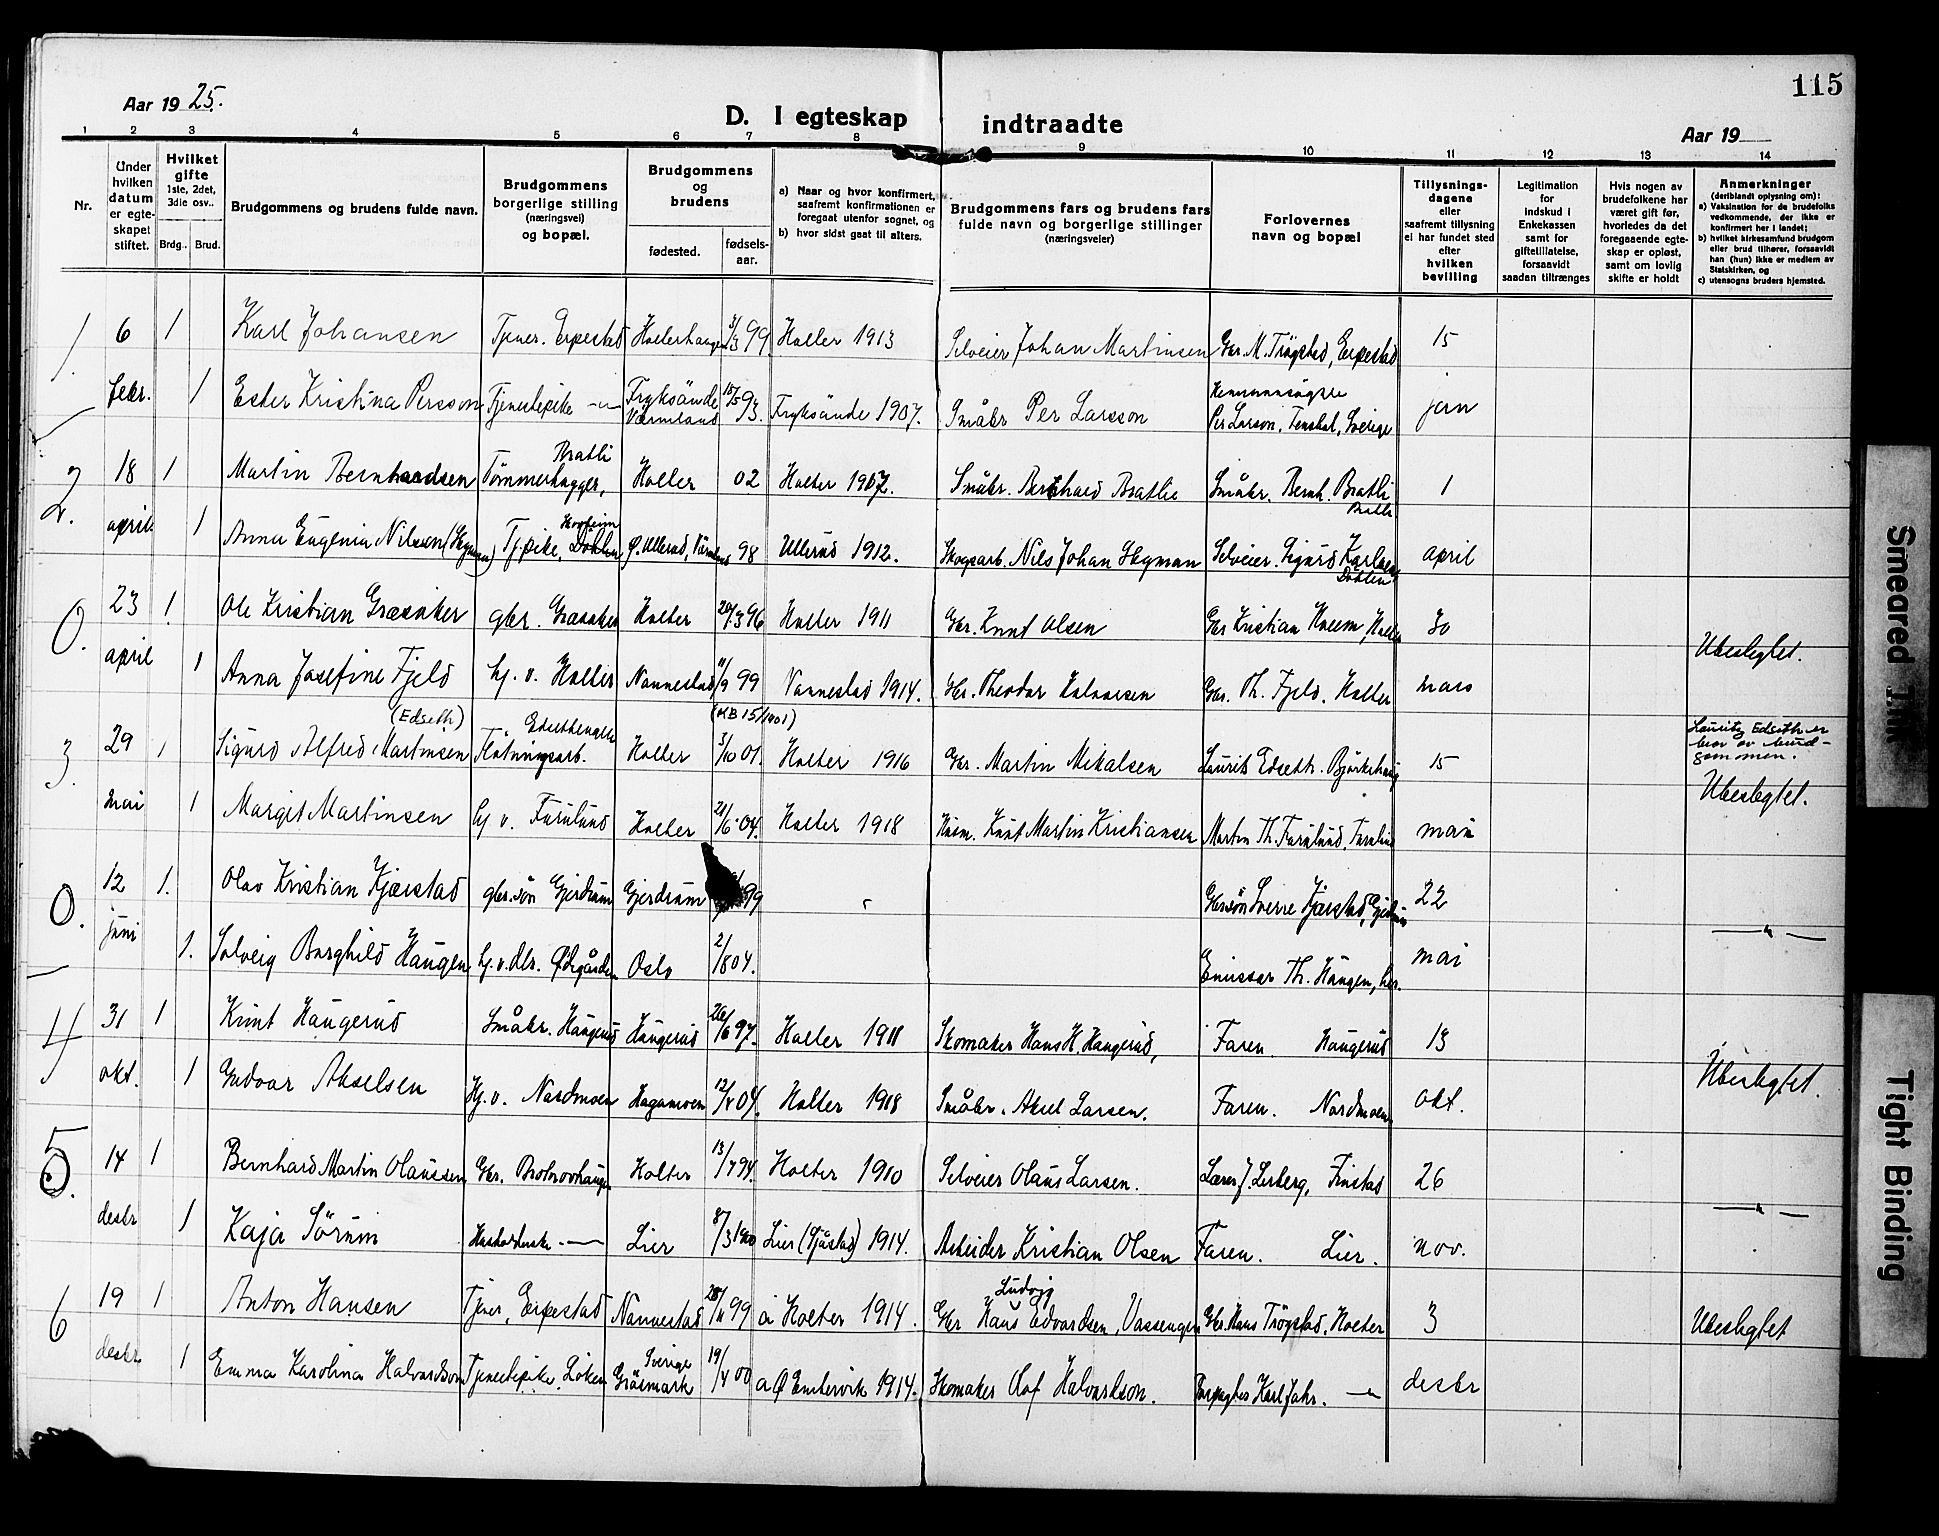 115
Aar 1925.
D. I egteskap indtraadte
Aar 19
1 2 3 4 5 6 7 8 9 10 11 12 13 14
Nr.
Under hvilken datum er egteskapet stiftet.
Hvilket gifte
1ste, 2det, 3die osv..
Brdg..
Brud.
Brudgommens og brudens fulde navn.
Brudgommens borgerlige stilling (næringsvei) og bopæl.
Brudgommens og brudens
fødested.
fødsels-aar.
a) Naar og hvor konfirmert, saafremt konfirmationen er foregaat utenfor sognet, og
b) hvor sidst gaat til alters.
Brudgommens fars og brudens fars fulde navn og borgerlige stillinger (næringsveier)
Forlovernes navn og bopæl
Tillysnings-dagene eller saafremt tillysning ei har fundet sted efter hvilken bevilling
Legitimation for indskud i Enkekassen samt for giftetillatelse, forsaavidt saadan tiltrænges
Hvis nogen av brudefolkene har været gift før, hvorledes da det foregaaende egteskap er opløst, samt om lovlig skifte er holdt
Anmerkninger (deriblandt oplysning om):
a) Vaksination for de brudefolks vedkommende, der ikke er konfirmert her i landet;
b) hvilket kirkesamfund brudgom eller brud tilhører, forsaavidt han (hun) ikke er medlem av Statskirken, og
c) utensogns bruders hjemsted.
1. 6 1 Karl Johansen Tjener. Erpestad Holterhaugen 3/3 99 Holter 1913 Selveier Johan Martinsen Gbr. M. Trøgstad, Erpestad 15
febr. 1 Ester Kristina Persson Tjenestepike -"- Fryksände Värmland 15/5 93. Fryksände 1907. Småbr Per Larsson Per Larson, Sverige jan
2. 18 1 Martin Bernhardsen Tømmerhugger, Bratli Holter 02 Holter 1907. Småbr. Bernhard Bratlie Småbr. Bernh. Bratli Bratli 1
april 1 Anna Eugenia Nilsson (Hegman) Tj.pike, Döhlen Ø. Ullerud, 98 Ullerud 1912. Skogsarb. Nils Johan Hegman Selveier Sigurd Karlsen Döhlen april
0. 23 1. Ole Kristian Græsaker gbr. Græsaker Holter 20/3 96 Holter 1911 Gbr. Knut Olsen Gbr Kristian Holter 30
april 1 Anna Josefine Fjeld hj. v. Holter Nannestad 11/9 99 Nannestad 1914. Gbr. Theodor Gbr. Th. Fjeld. Holter mars Ubeslegtet.
3. 29 1 Sigurd Alfred Martinsen (Edseth) Fløtningsarb. Holter (KB 15/1001) 3/10 01. Holter 1916 Gbr. Martin Mikalsen Laurits Edseth. Bjørkehaug 15 Lauritz Edseth er bror av brudgommen.
mai 1 Margit Martinsen hj v. Furulund Holter 21/6 04. Holter 1918 Knut Martin Kristiansen Martin Th. Furulund, Furulund mai Ubeslegtet.
0. 12 1. Olav Kristian Kjærstad gbr.søn Gjerdrum Gjerdrum 99 Gbrsøn Sverre Kjærstad, Gjerdrum 22
juni 1. Solveig Borghild Haugen hj. v. Ødegården Oslo 2/8 04. Emissær Th. Haugen, her. mai -"-
4 31 1 Knut Haugerud Småbr. Haugerud Haugerud 26/6 97. Holter 1911 Skomaker Hans H. Haugerud, Faren Haugerud 13
okt. 1 Gudvor Akselsen Hj. v. Nordmoen Hagamoen 12/5 04. Holter 1918 Småbr. Aksel Larsen. Faren. Nordmoen okt. Ubeslegtet.
5. 14 1 Bernhard Martin Olaussen Gbr. Holter 13/7 94. Holter 1910 Selveier Olaus Larsen. Lærer J. Lerberg, Finstad 26
desbr 1 Kaja Sørum -"- Lier 8/3 1900 Lier (Sjåstad) 1914. Arbeider Kristian Olsen Faren. Lier. nov. -"-
6 19 1 Anton Hansen Tjener, Erpestad Nannestad 28/11 99 a Holter 1914. Gbr Hans Ludvig Edvardsen, Vassengen Gbr. Hans Trøgstad, Holter 3 Ubeslegtet
desbr. 1 Emma Karolina Halvardsson Tjenestepike. Løken Sverige Gräsmark 19/4 00 a Ø Emtervik 1914. Skomaker Olof Halvardsson. Karl Johs. -"- desbr
Smeared Ink
Tight Binding